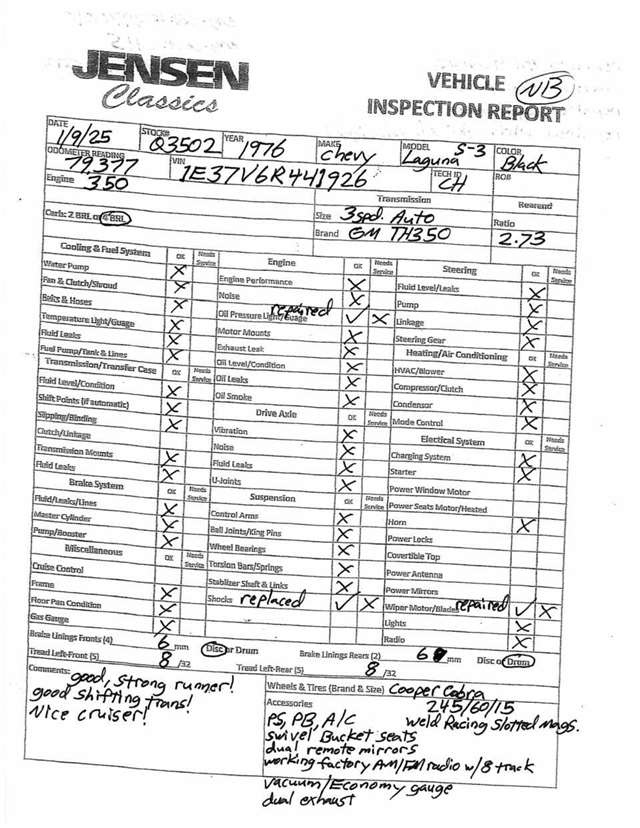 JENSEN
Classics
VEHICLE NB
INSPECTION REPORT
DATE 1/9/25 STOCK# Q3502 YEAR 1976 MAKE Chevy MODEL S-3 Laguna COLOR Black
ODOMETER READING 79,377 VIN 1E37V6R441926 TECH ID CH RO#
Engine 350 Transmission Rearend
Carb: 2 BRL or 4 BRL Size 3spd. Auto Ratio
Brand GM TH350 2.73
Cooling & Fuel System OK Needs Service Engine OK Needs Service Steering OK Needs Service
Water Pump X Engine Performance X Fluid Level/Leaks X
Fan & Clutch/Shroud X Noise X Pump X
Belts & Hoses X Oil Pressure Light/Guage repaired ✓ X Linkage X
Temperature Light/Guage X Motor Mounts X Steering Gear X
Fluid Leaks X Exhaust Leak X Heating/Air Conditioning OK Needs Service
Fuel Pump/Tank & Lines X Oil Level/Condition X HVAC/Blower X
Transmission/Transfer Case OK Needs Service Oil Leaks X Compressor/Clutch X
Fluid Level/Condition X Oil Smoke X Condensor X
Shift Points (if automatic) X Drive Axle OK Needs Service Mode Control X
Slipping/Binding X Vibration X Electical System OK Needs Service
Clutch/Linkage Noise X Charging System X
Transmission Mounts X Fluid Leaks X Starter X
Fluid Leaks X U-Joints X Power Window Motor
Brake System OK Needs Service Suspension OK Needs Service Power Seats Motor/Heated
Fluid/Leaks/Lines X Control Arms X Horn X
Master Cylinder X Ball Joints/King Pins X Power Locks
Pump/Booster X Wheel Bearings X Covertible Top
Miscellaneous OK Needs Service Torsion Bars/Springs X Power Antenna
Cruise Control Stablizer Shaft & Links X Power Mirrors
Frame X Shocks replaced ✓ X Wiper Motor/Blades repaired ✓ X
Floor Pan Condition X Lights X
Gas Gauge X Radio X
Brake Linings Fronts (4) 6 mm Disc or Drum Brake Linings Rears (2) 6 mm Disc or Drum
Tread Left-Front (5) 8 /32 Tread Left-Rear (5) 8 /32
Comments: good, strong runner!
good shifting trans!
Nice cruiser!
Wheels & Tires (Brand & Size) Cooper Cobra
245/60/15
Accessories Weld Racing Slotted Mags.
PS, PB, A/C
swivel Bucket seats
dual remote mirrors
working factory AM/FM radio w/8 track
vacuum/Economy gauge
dual exhaust